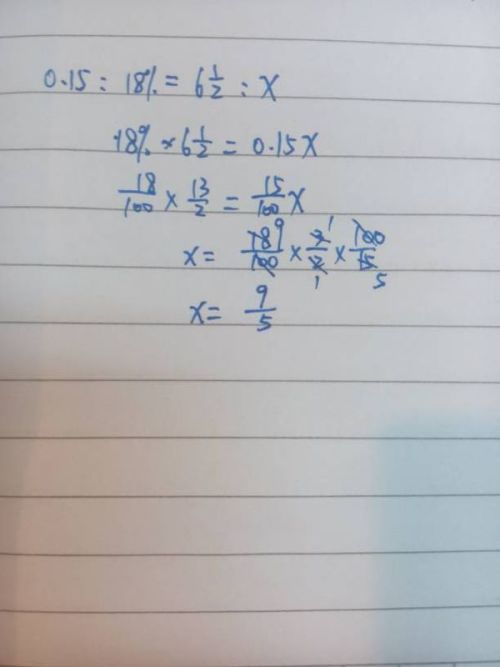 0.15 : 18% = 6 1/2 : x
18% × 6 1/2 = 0.15x
18/100 × 13/2 = 15/100 x
x = 18 9/100 × 3 1/2 1 × 100/15 5
x = 9/5